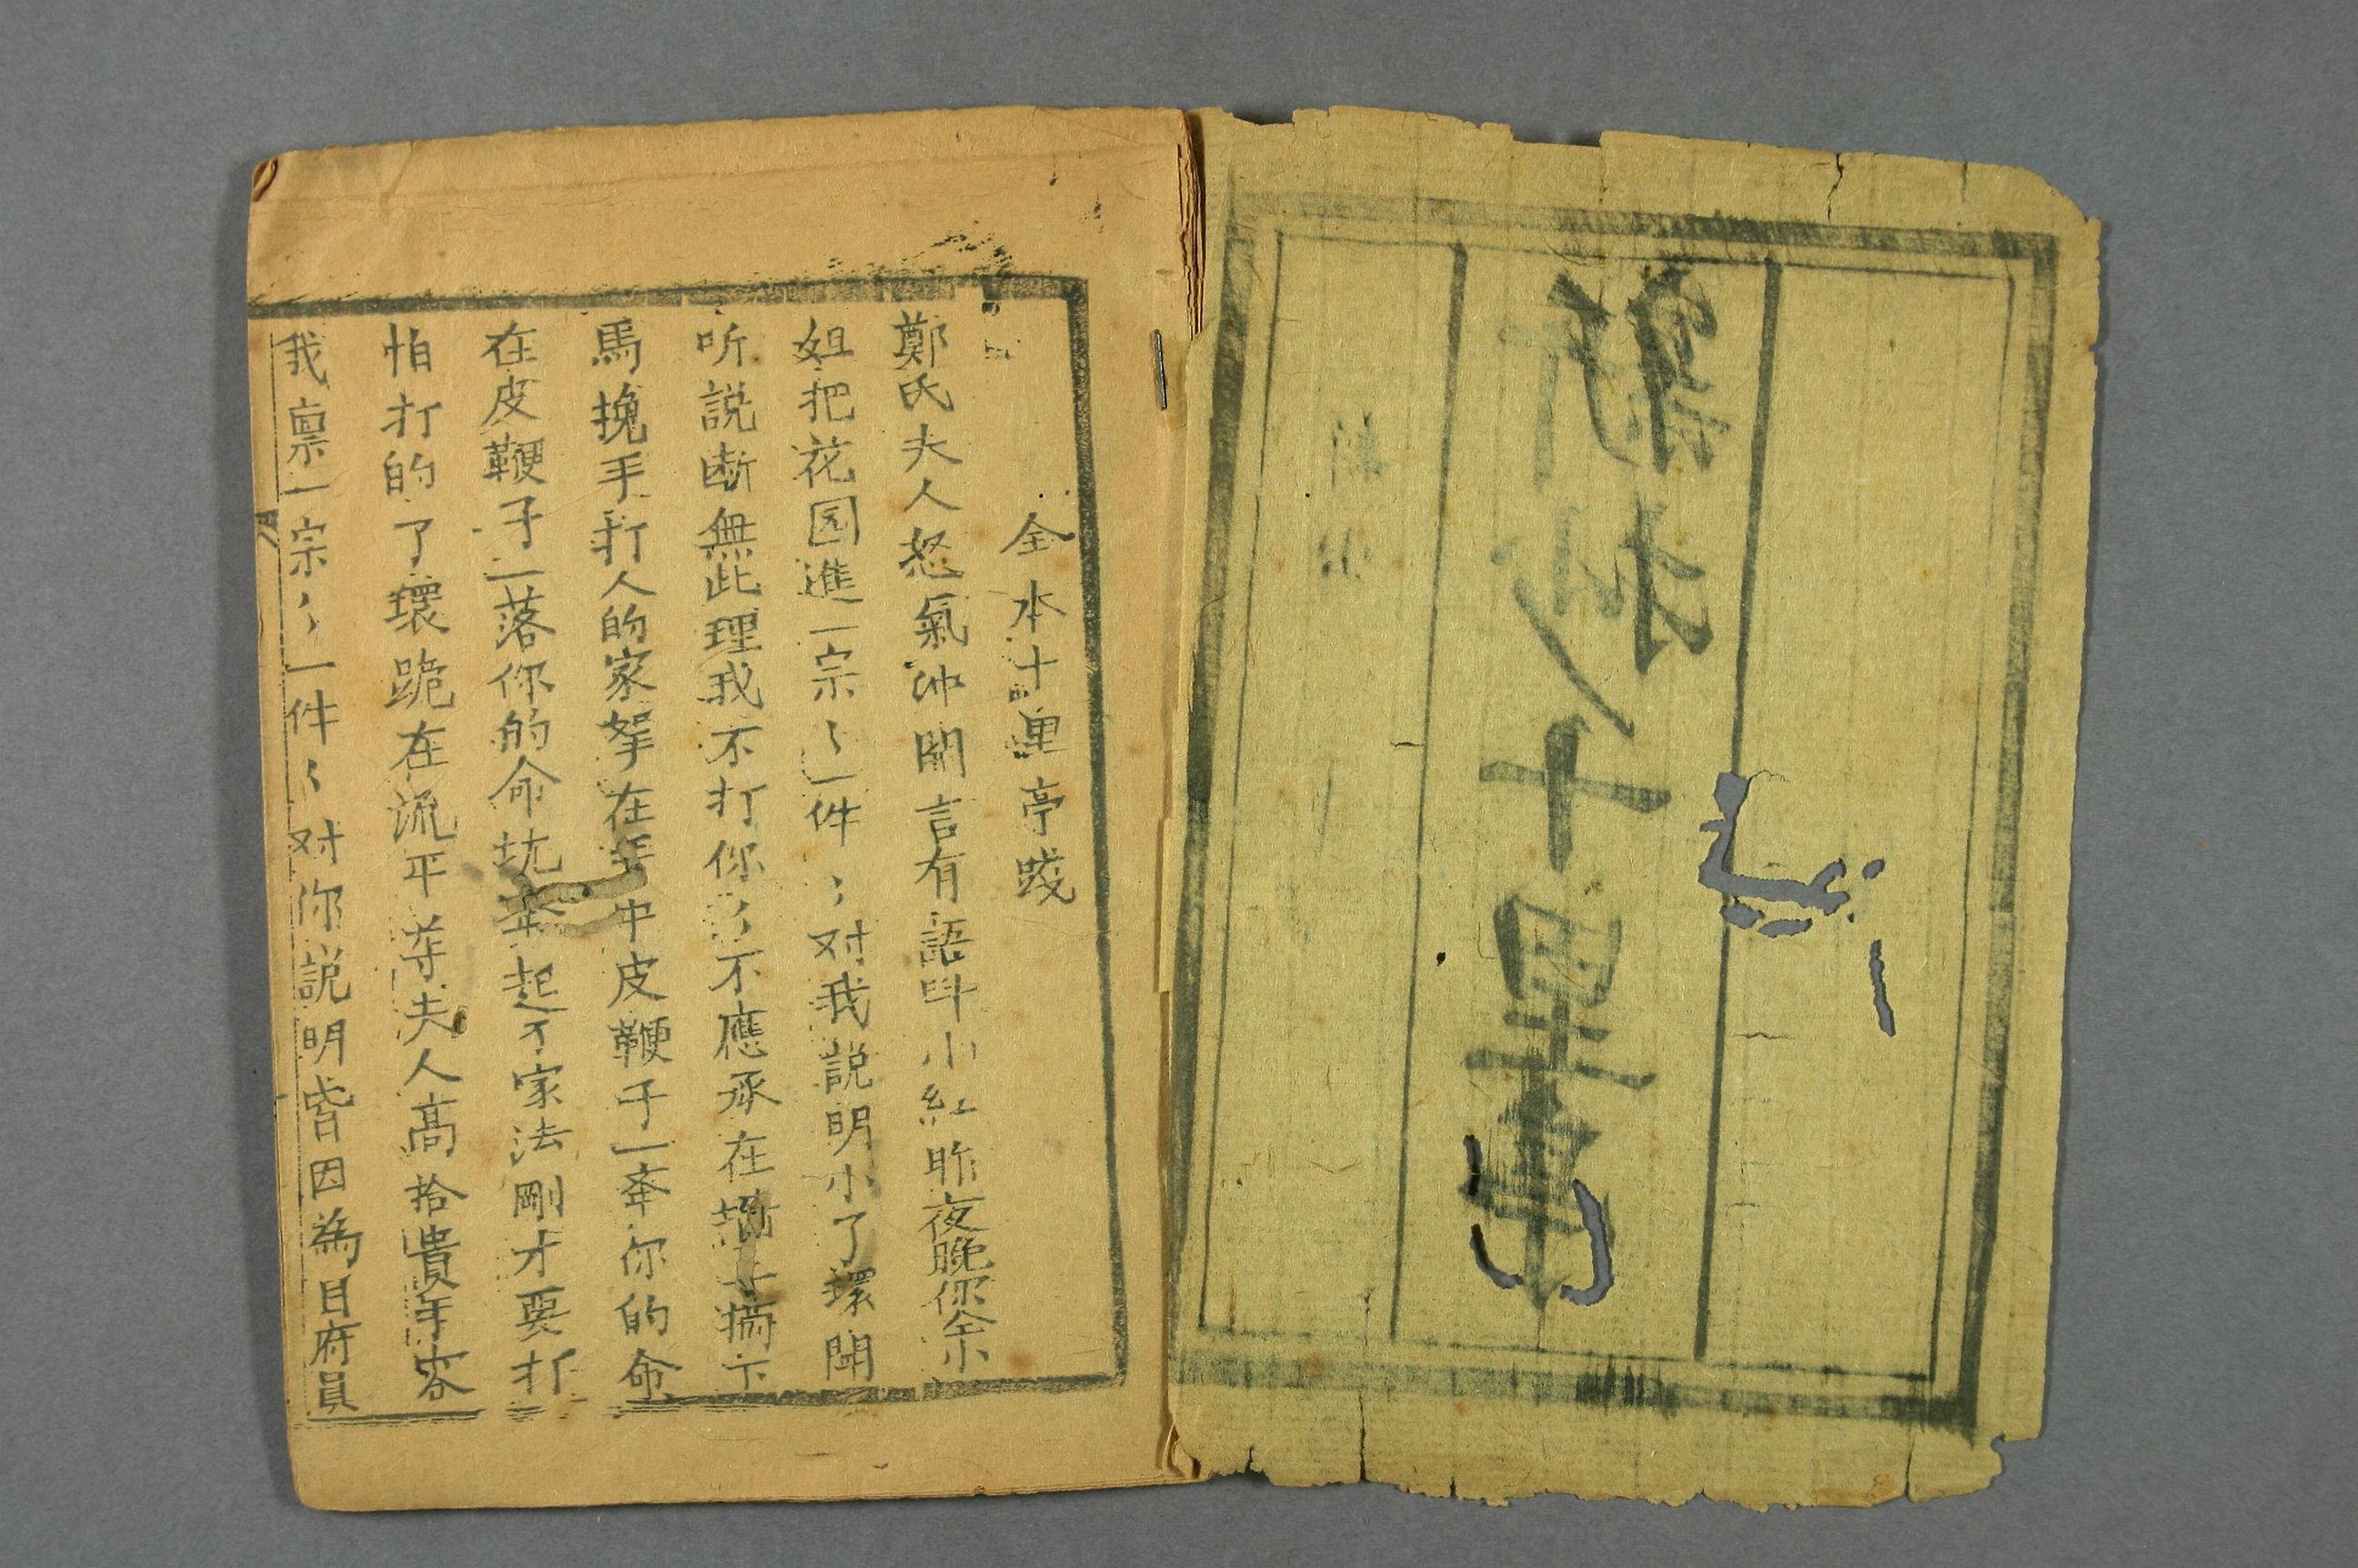 十里亭
全本十里亭
鄭氏夫人怒氣冲開言有語叫小紅昨夜晚你仝小
姐把花园進一宗〻一件〻对我說明小了環聞
听說断無此理我不打你〻不應承在墻上摘下
馬挽手打人的家拏在手中皮鞭子一牽你的命
在皮鞭子一落你的命坑牽起了家法剛才要打
怕打的了環跪在流平等夫人高抬貴手容
我禀一宗〻一件〻对你說明皆因為自府員